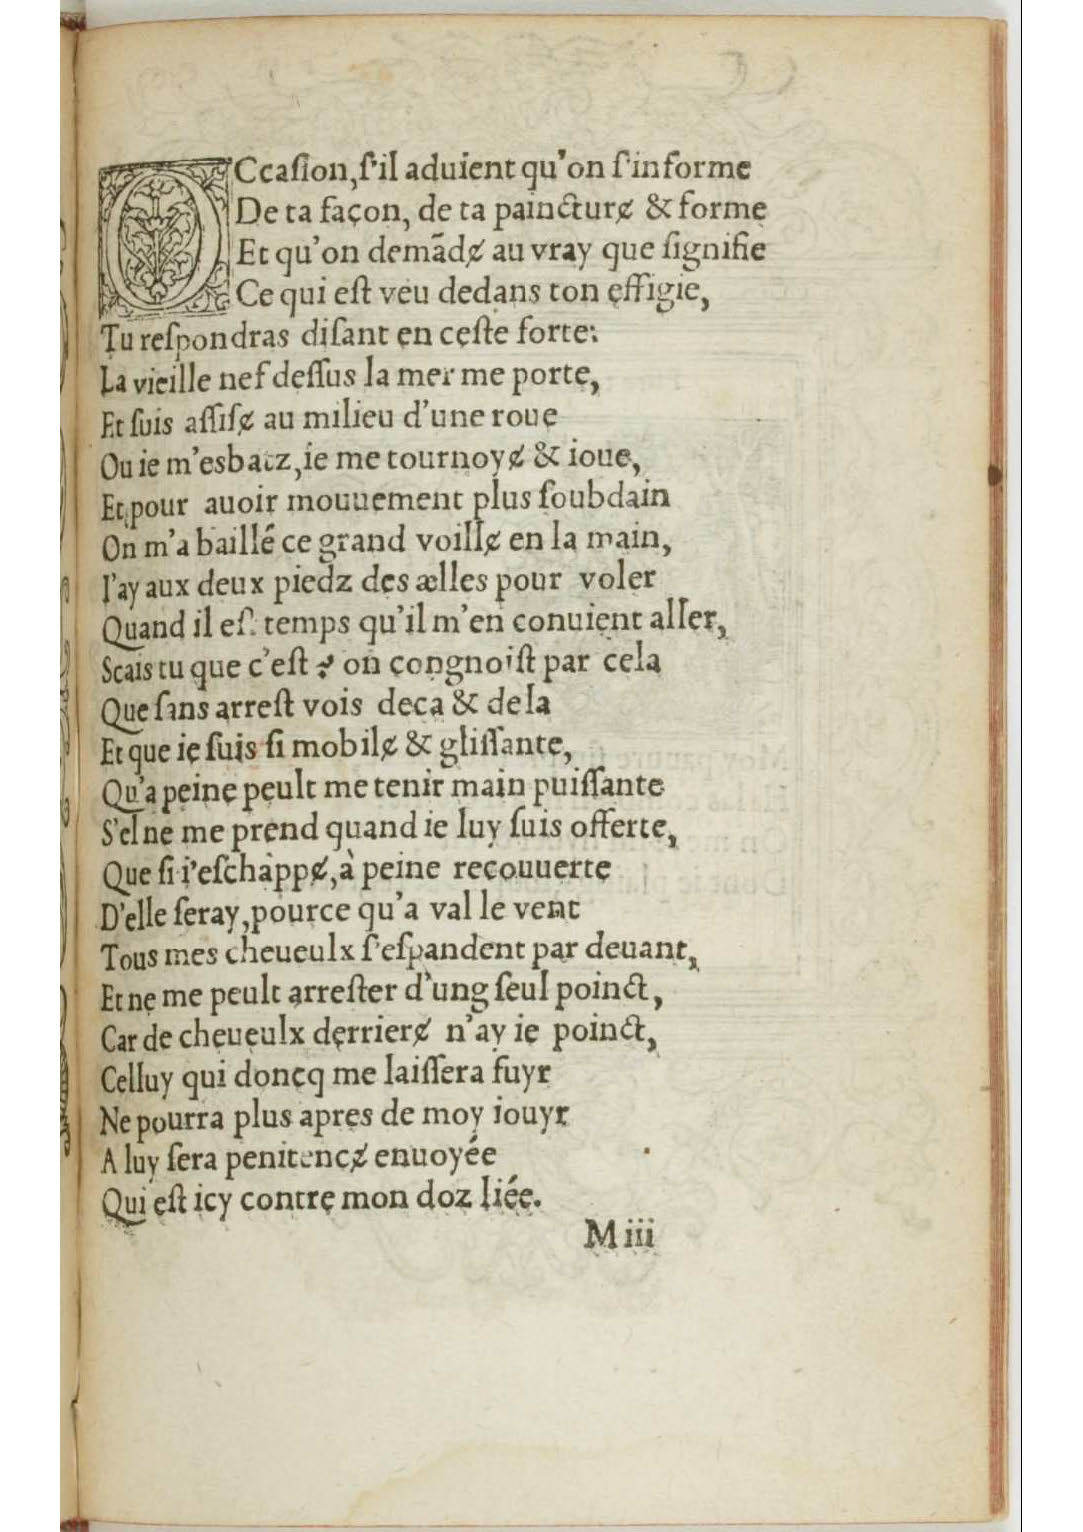 OCcaſion, ſ'il aduient qu'on ſ'informe
De ta façon, de ta paincturɇ & forme
Et qu'on demãdɇ au vray que ſignifie
Ce qui eſt veu dedans ton effigie,
Tu reſpondras diſant en ceſte ſorte:
La vieille nef deſſus la mer me porte,
Et ſuis aſſiſɇ au milieu d'une roue
Ou ie m'esbatz, ie me tournoyɇ & ioue,
Et pour auoir mouuement plus ſoubdain
On m'a baillé ce grand voillɇ en la main,
I'ay aux deux piedz des ælles pour voler
Quand il eſt temps qu'il m'en conuient aller,
Scais tu que c'eſt? on congnoiſt par cela
Que ſans arreſt vois deca & dela
Et que ie ſuis ſi mobilɇ & gliſſante,
Qu'a peine peult me tenir main puiſſante
S'el ne me prend quand ie luy ſuis offerte,
Que ſi i'eſchappɇ, à peine recouuerte
D'elle ſeray, pource qu'a val le vent
Tous mes cheueulx ſ'eſpandent par deuant,
Et ne me peult arreſter d'ung ſeul poinct,
Car de cheueulx derrierɇ n'ay ie poinct,
Celluy qui doncq me laiſſera fuyr
Ne pourra plus apres de moy iouyr
A luy ſera penitencɇ enuoyée
Qui eſt icy contre mon doz liée.
M iii